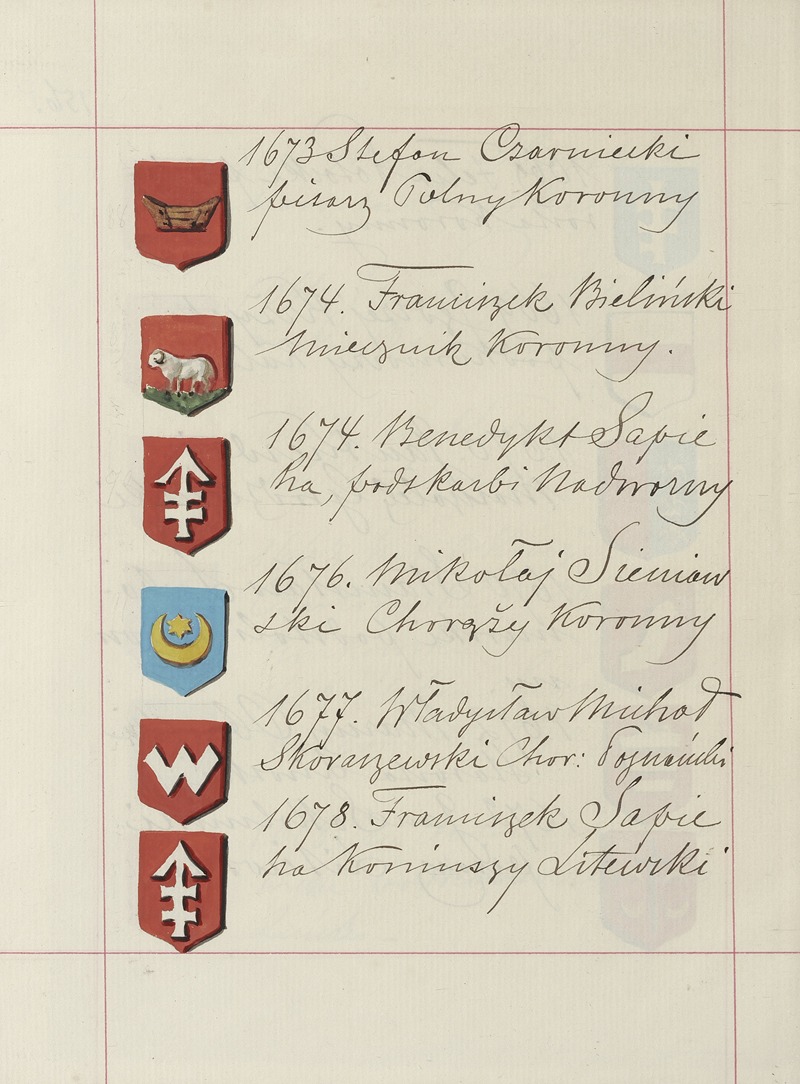 1673 Stefan Czarniecki
pisarz Polny Koronny
1674. Franciszek Bieliński
Miecznik Koronny.
1674. Benedykt Sapie
ha, podskarbi Nadworny
1676. Mikołaj Sieniaw
ski Chorąży Koronny
1677. Władysław Michał
Skoraszewski Chor: Poznański
1678. Franciszek Sapie
ha Koniuszy Litewski